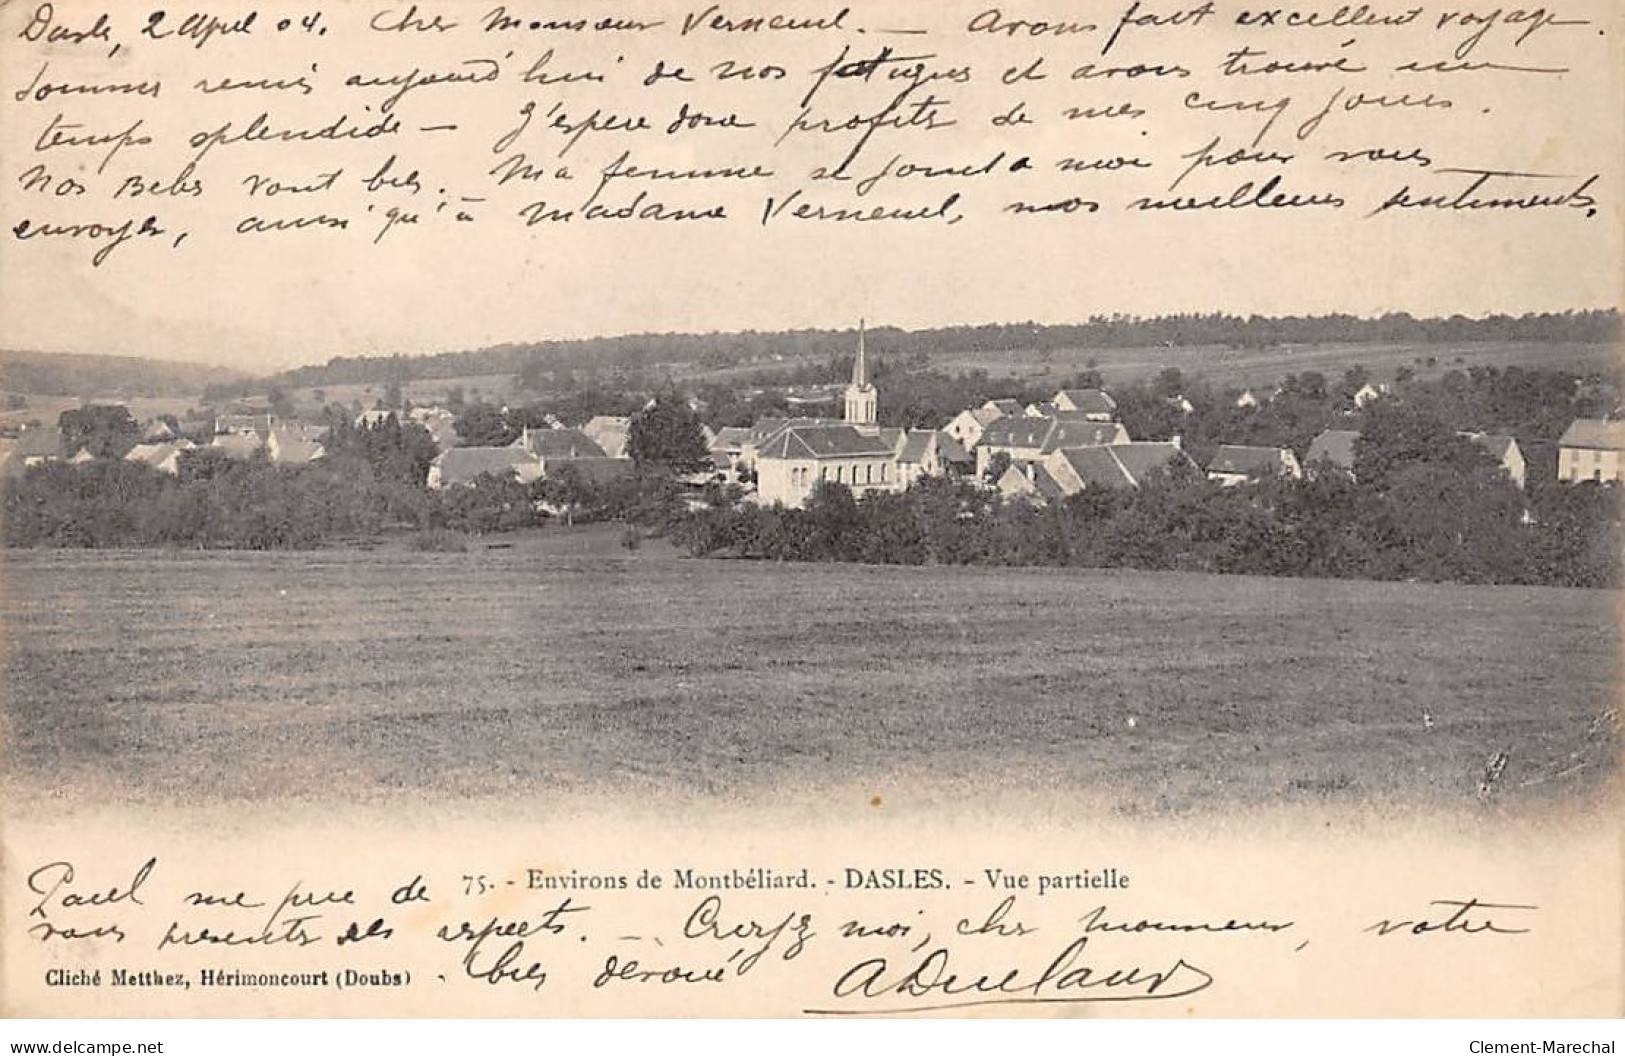 Dasle, 2 April 04. Cher Monsieur Verneuil. — Avons fait excellent voyage.
Sommes remis aujourd'hui de nos fatigues et avons trouvé un
temps splendide — J'espère donc profiter de mes cinq jours.
Nos Bebes vont bien. Ma femme se joint à moi pour vous
envoyer, ainsi qu'à Madame Verneuil, nos meilleurs sentiments.
75. - Environs de Montbéliard. - DASLES. - Vue partielle
Paul me prie de
vous presenter ses respects. — Croyez moi, cher monsieur, votre
bien dévoué
Cliché Metthez, Hérimoncourt (Doubs)
Clement-Marechal
www.delcampe.net